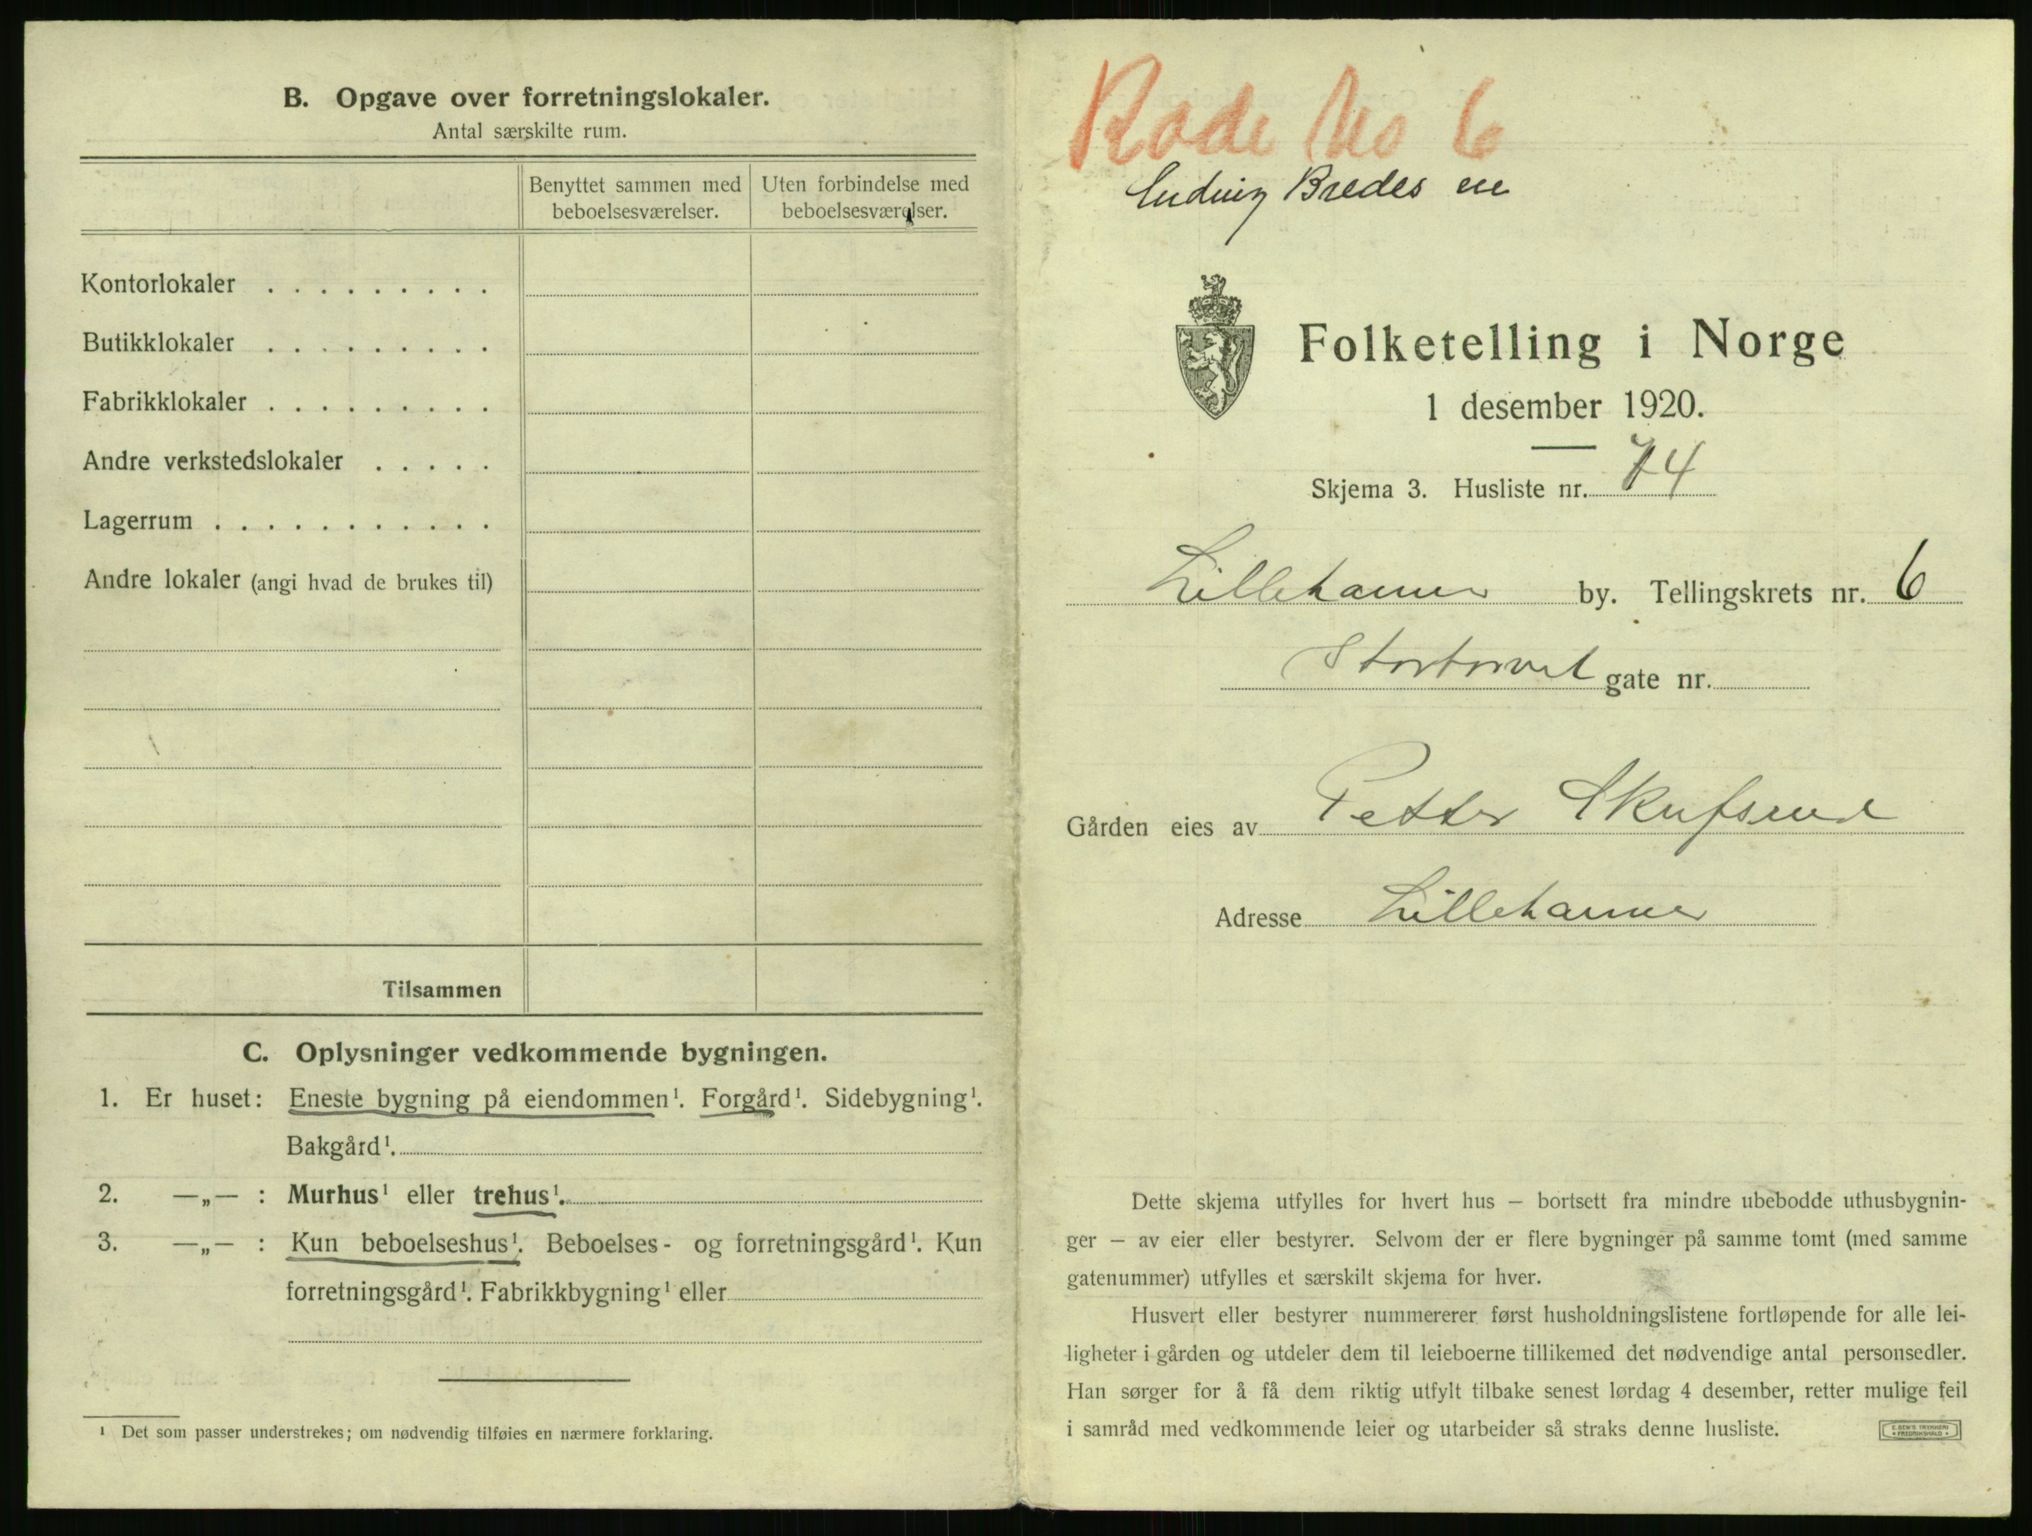 B. Opgave over forretningslokaler.
Antal særskilte rum.
Benyttet sammen med beboelsesværelser.
Uten forbindelse med beboelsesværelser.
Kontorlokaler . . . . . . . . .
Butikklokaler . . . . . . . . .
Fabrikklokaler . . . . . . . . .
Andre verkstedslokaler . . . . .
Lagerrum . . . . . . . . . . .
Andre lokaler (angi hvad de brukes til)
Tilsammen
C. Oplysninger vedkommende bygningen.
1. Er huset: Eneste bygning på eiendommen¹. Forgård¹. Sidebygning¹.
Bakgård¹.
2. —„— : Murhus¹ eller trehus¹.
3. —„— : Kun beboelseshus¹. Beboelses- og forretningsgård¹. Kun
forretningsgård¹. Fabrikkbygning¹ eller
¹ Det som passer understrekes; om nødvendig tilføies en nærmere forklaring.
Rode No 6
Ludvig Bredesen
Folketelling i Norge
1 desember 1920.
Skjema 3. Husliste nr. 74
Lillehammer by. Tellingskrets nr. 6
Stortorvet gate nr.
Gården eies av Petter Skufsrud
Adresse Lillehammer
Dette skjema utfylles for hvert hus — bortsett fra mindre ubebodde uthusbygnin-
ger — av eier eller bestyrer. Selvom der er flere bygninger på samme tomt (med samme
gatenummer) utfylles et særskilt skjema for hver.
Husvert eller bestyrer nummererer først husholdningslistene fortløpende for alle lei-
ligheter i gården og utdeler dem til leieboerne tillikemed det nødvendige antal personsedler.
Han sørger for å få dem riktig utfylt tilbake senest lørdag 4 desember, retter mulige feil
i samråd med vedkommende leier og utarbeider så straks denne husliste.